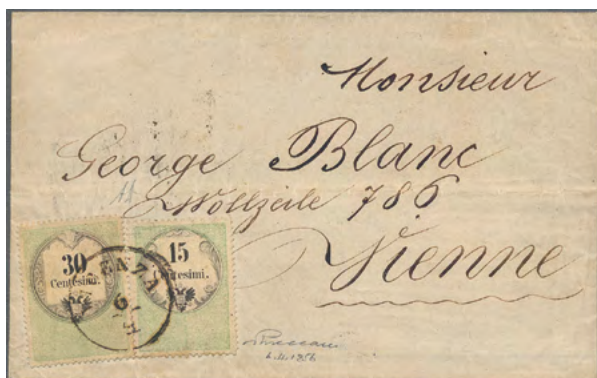 Monsieur
George Blanc
Wollzeile 786
Vienne
30
Centesimi.
15
Centesimi.